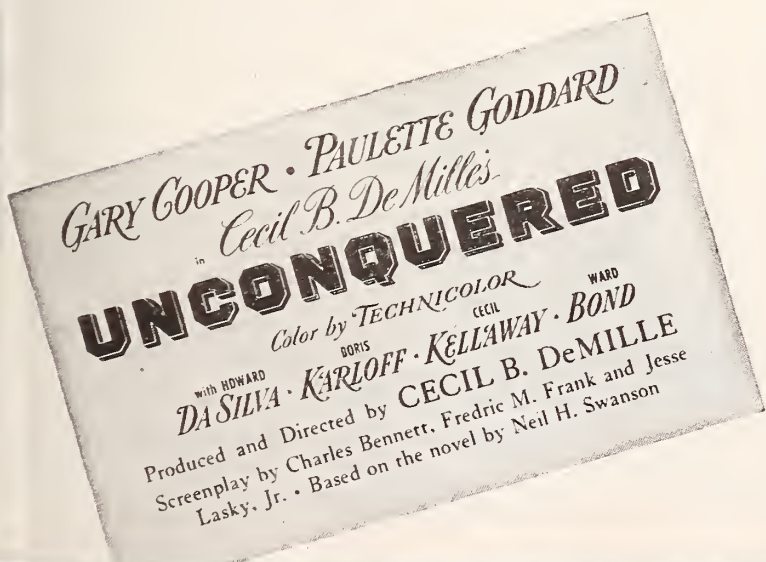 GARY COOPER • PAULETTE GODDARD
in Cecil B. DeMille's
UNCONQUERED
Color by TECHNICOLOR
with HOWARD DA SILVA • BORIS KARLOFF • CECIL KELLAWAY • WARD BOND
Produced and Directed by CECIL B. DeMILLE
Screenplay by Charles Bennett, Fredric M. Frank and Jesse
Lasky, Jr. • Based on the novel by Neil H. Swanson